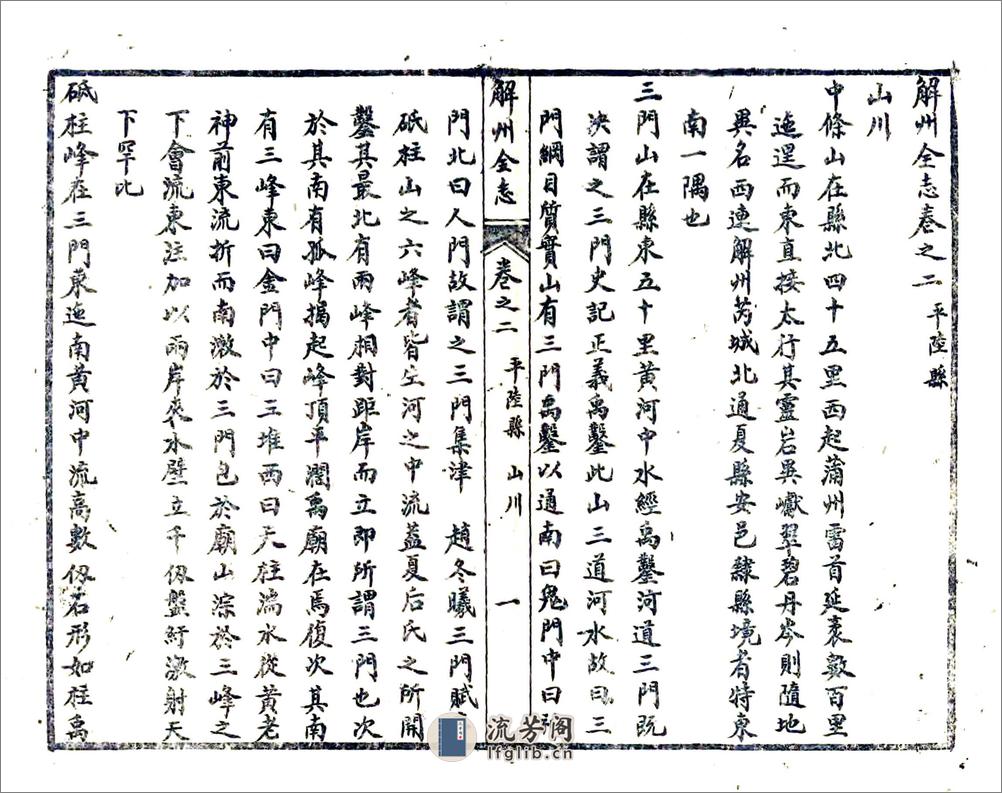 解州全志卷之二 平陸縣
山川
中條山在縣北四十五里西起蒲州雷首延袤數百里
迤邐而東直接太行其靈岩異巘翠碧丹岑則隨地
異名西連解州芮城北通夏縣安邑隸縣境者特東
南一隅也
三門山在縣東五十里黃河中水經禹鑿河道三門既
決謂之三門史記正義禹鑿此山三道河水故曰三
門綱目質實山有三門禹鑿以通南曰鬼門中曰神
解州全志 卷之二 平陸縣 山川 一
門北曰人門故謂之三門集津 趙冬曦三門賦
砥柱山之六峰者皆生河之中流蓋夏后氏之所開
鑿其最北有兩峰相對距岸而立即所謂三門也次
於其南有孤峰揭起峰頂平濶禹廟在焉復次其南
有三峰東曰金門中曰三堆西曰天柱湍水從黃老
神前東流折而南激於三門包於廟山淙於三峰之
下會流東注加以兩岸夾水壁立千仞盤紆激射天
下罕比
砥柱峰在三門東迤南黃河中流高數仞石形如柱禹
流芳阁
lfglib.cn